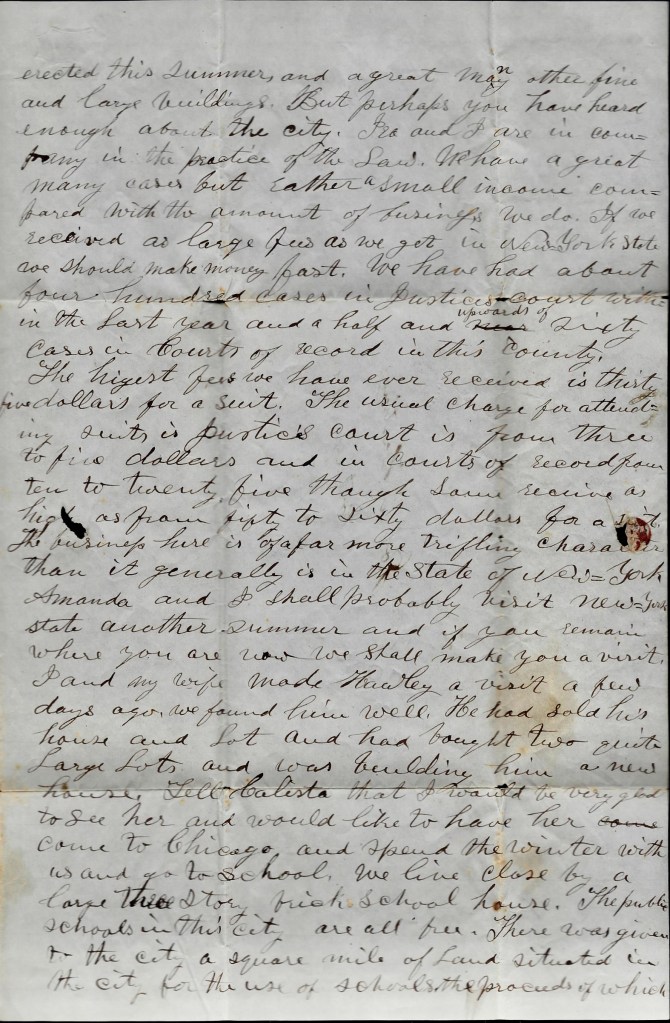 erected this summer, and a great many other fine
and large buildings. But perhaps you have heard
enough about the city. Ira and I are in com=
pany in the practice of the Law. We have a great
many cases but rather a small income com=
pared with the amount of business we do. If we
received as large fees as we get in New=York State
we should make money fast. We have had about
four hundred cases in Justices court with=
in the last year and a half and near upwards of sixty
cases in Courts of record in this County.
The higest fees we have ever received is thirty
five dollars for a suit. The usual charge for attend=
ing suits is Justices court is from three
to five dollars and in courts of record from
ten to twenty five though some receive as
high as from fifty to sixty dollars for a suit.
The business here is of a far more trifling character
than it generally is in the State of New=York
Amanda and I shall probably visit New=York
state another summer and if you remain
where you are now we shall make you a visit.
I and my wife made Hawley a visit a few
days ago. we found him well. He had sold his
house and Lot and had bought two quite
Large Lots and was building him a new
house. Tell Calista that I would be very glad
to see her and would like to have her come
come to Chicago, and spend the winter with
us and go to school. We live close by a
large three story brick school house. The public
schools in this city are all free. There was given
to the city a square mile of Land situated in
the city for the use of schools the proceeds of which